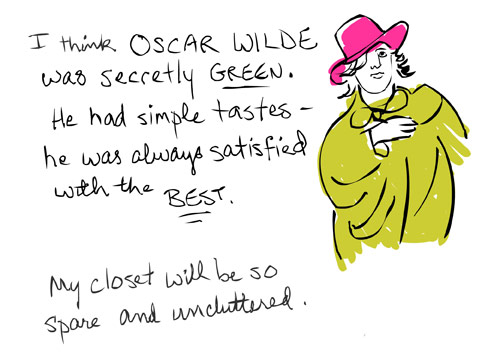 I think OSCAR WILDE
was secretly GREEN.
He had simple tastes -
he was always satisfied
with the BEST.
My closet will be so
spare and uncluttered.